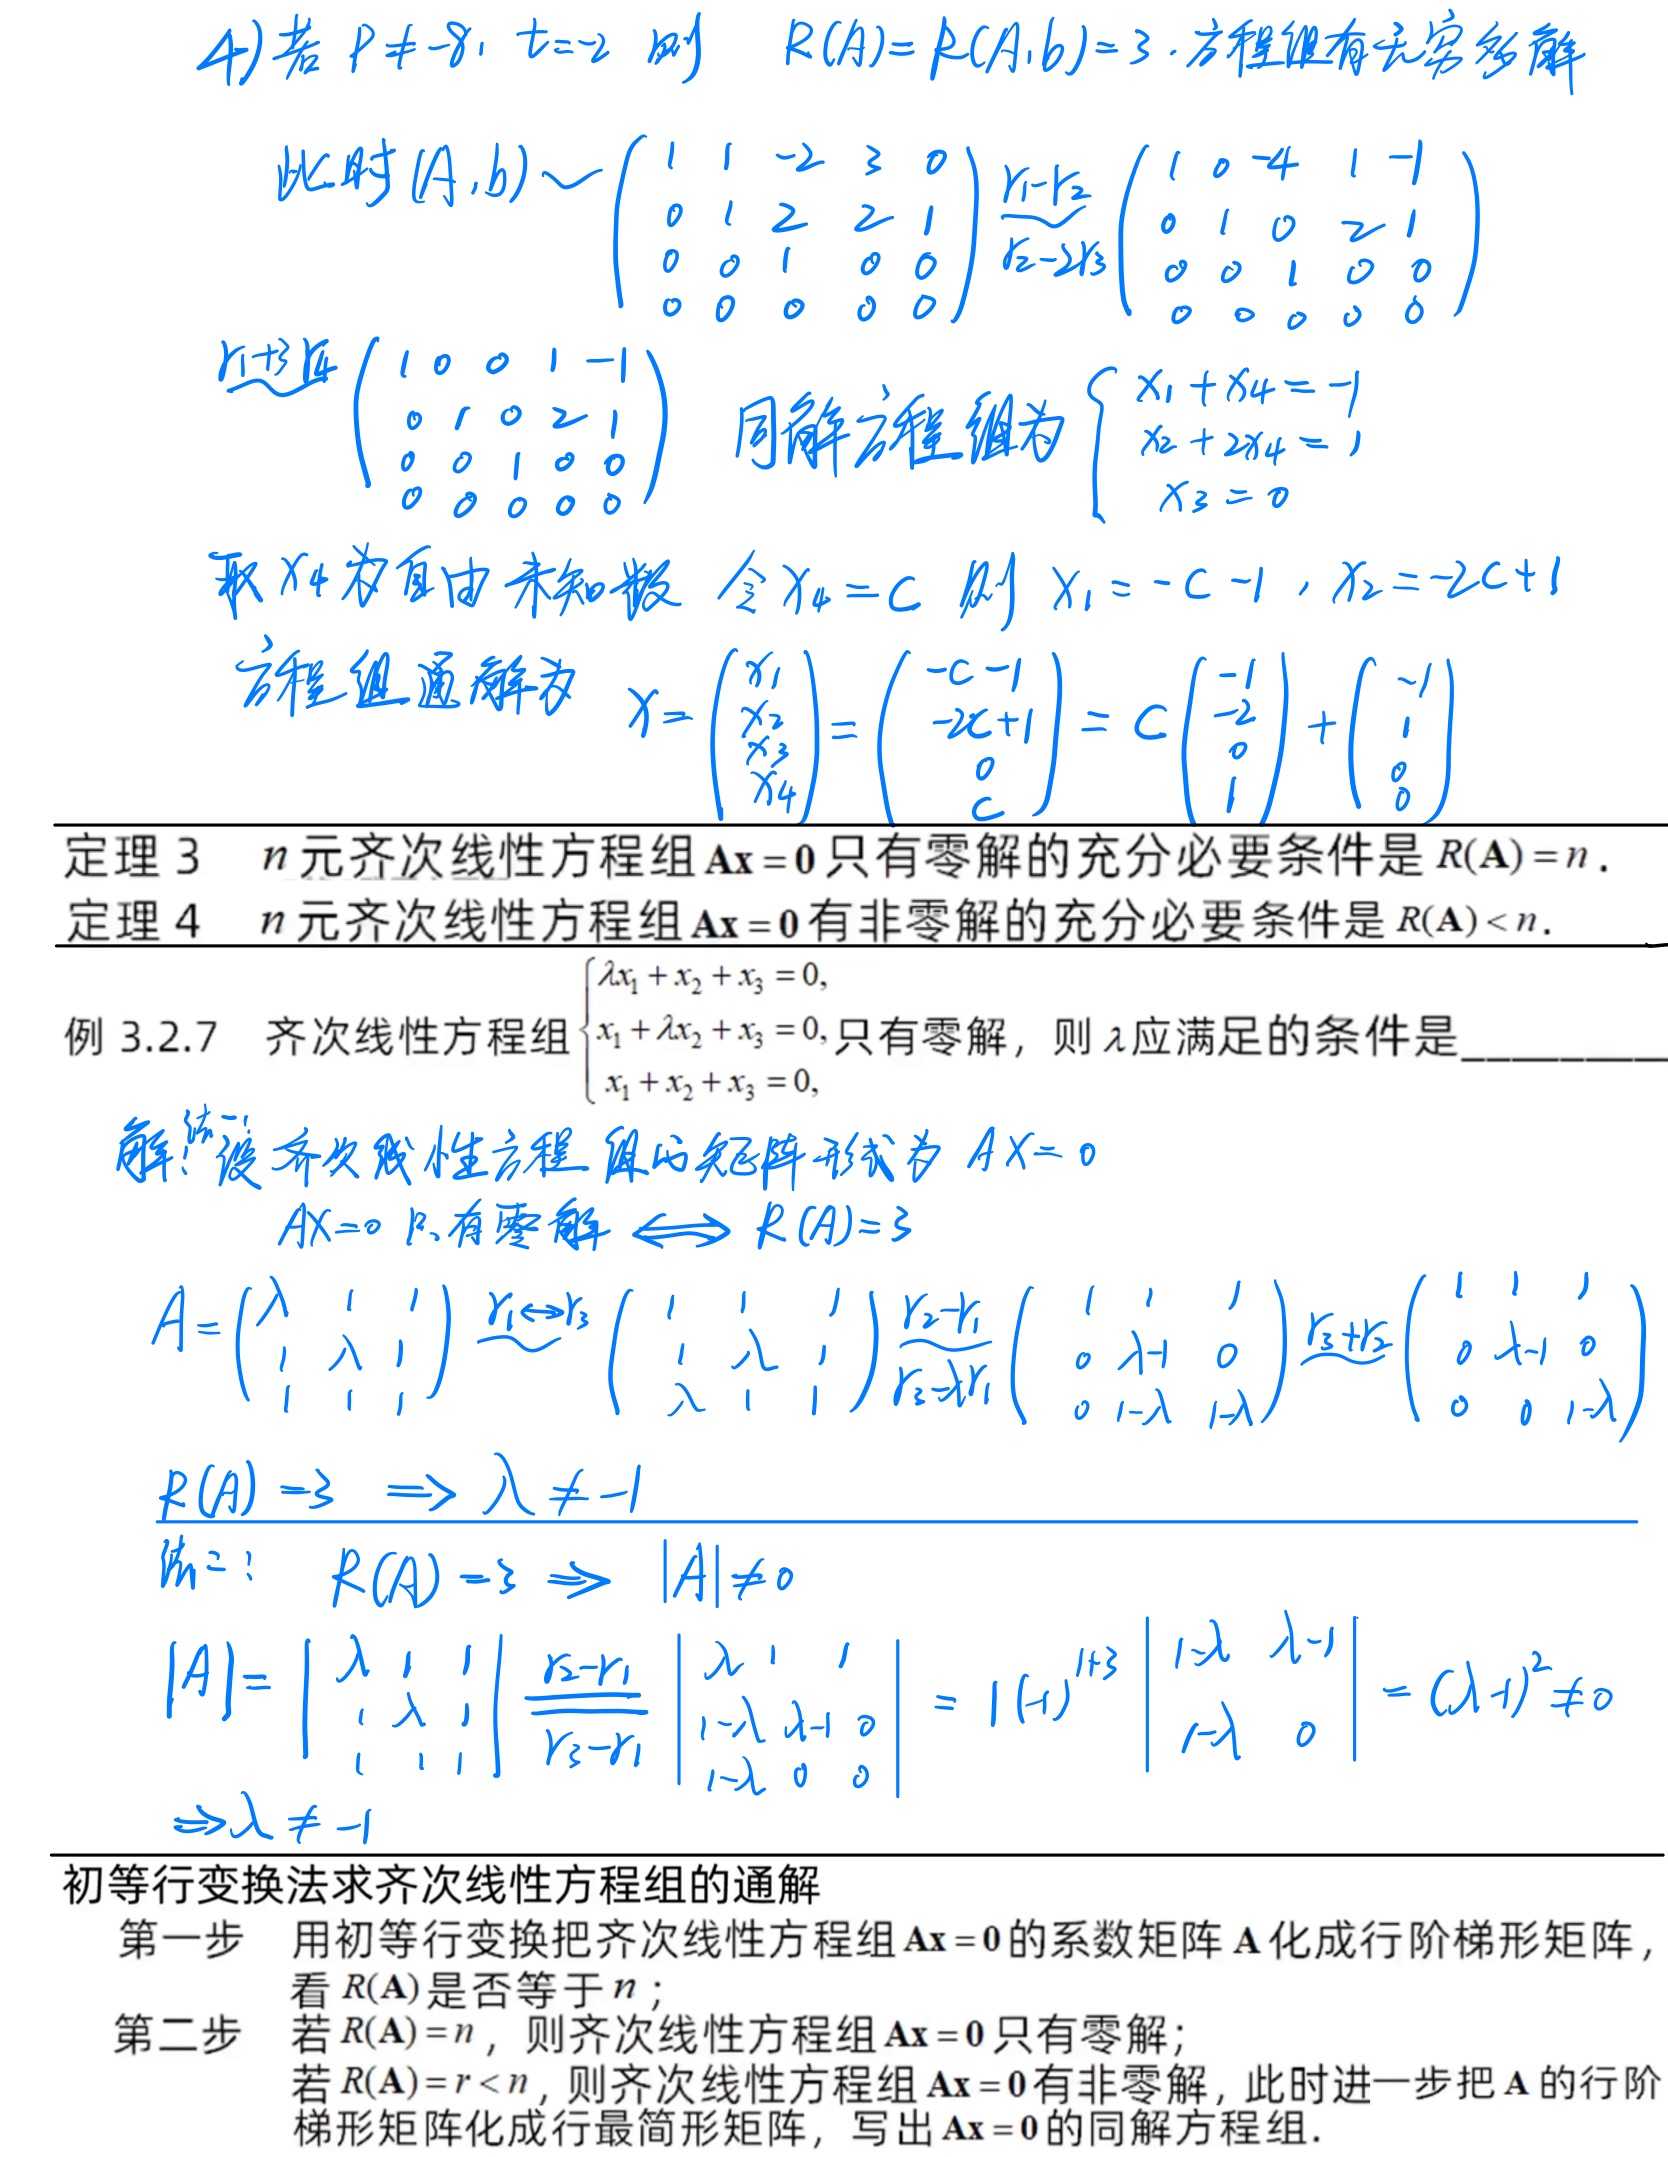 4) 若 P≠-8, t=-2 则 R(A)=R(A,b)=3. 方程组有无穷多解
此时(A,b) ~ (1 1 -2 3 0; 0 1 2 2 1; 0 0 1 0 0; 0 0 0 0 0) r₁-r₂ ~ r₂-2r₃ (1 0 -4 1 -1; 0 1 0 2 1; 0 0 1 0 0; 0 0 0 0 0)
r₁+3r₄ ~ (1 0 0 1 -1; 0 1 0 2 1; 0 0 1 0 0; 0 0 0 0 0) 同解方程组为 { x₁+x₄=-1; x₂+2x₄=1; x₃=0
取 x₄ 为自由未知数 令 x₄=c 则 x₁=-c-1, x₂=-2c+1
方程组通解为 X = (x₁; x₂; x₃; x₄) = (-c-1; -2c+1; 0; c) = c(-1; -2; 0; 1) + (-1; 1; 0; 0)
定理 3 n 元齐次线性方程组 Ax = 0 只有零解的充分必要条件是 R(A) = n.
定理 4 n 元齐次线性方程组 Ax = 0 有非零解的充分必要条件是 R(A) < n.
例 3.2.7 齐次线性方程组 { λx₁ + x₂ + x₃ = 0, x₁ + λx₂ + x₃ = 0, x₁ + x₂ + x₃ = 0, 只有零解，则 λ 应满足的条件是__________
解: 法一: 设齐次线性方程组的矩阵形式为 AX=0
AX=0 只有零解 ⟺ R(A)=3
A = (λ 1 1; 1 λ 1; 1 1 1) r₁↔r₃ ~ (1 1 1; 1 λ 1; λ 1 1) r₂-r₁ ~ r₃-λr₁ (1 1 1; 0 λ-1 0; 0 1-λ 1-λ) r₃+r₂ ~ (1 1 1; 0 λ-1 0; 0 0 1-λ)
R(A)=3 ⟹ λ≠-1
法二: R(A)=3 ⟹ |A|≠0
|A| = |λ 1 1; 1 λ 1; 1 1 1| r₂-r₁ = r₃-r₁ |λ 1 1; 1-λ λ-1 0; 1-λ 0 0| = 1(-1)¹⁺³ |1-λ λ-1; 1-λ 0| = (λ-1)²≠0
⟹ λ≠-1
初等行变换法求齐次线性方程组的通解
第一步 用初等行变换把齐次线性方程组 Ax = 0 的系数矩阵 A 化成行阶梯形矩阵，
看 R(A) 是否等于 n；
第二步 若 R(A) = n，则齐次线性方程组 Ax = 0 只有零解；
若 R(A) = r < n，则齐次线性方程组 Ax = 0 有非零解，此时进一步把 A 的行阶
梯形矩阵化成行最简形矩阵，写出 Ax = 0 的同解方程组.